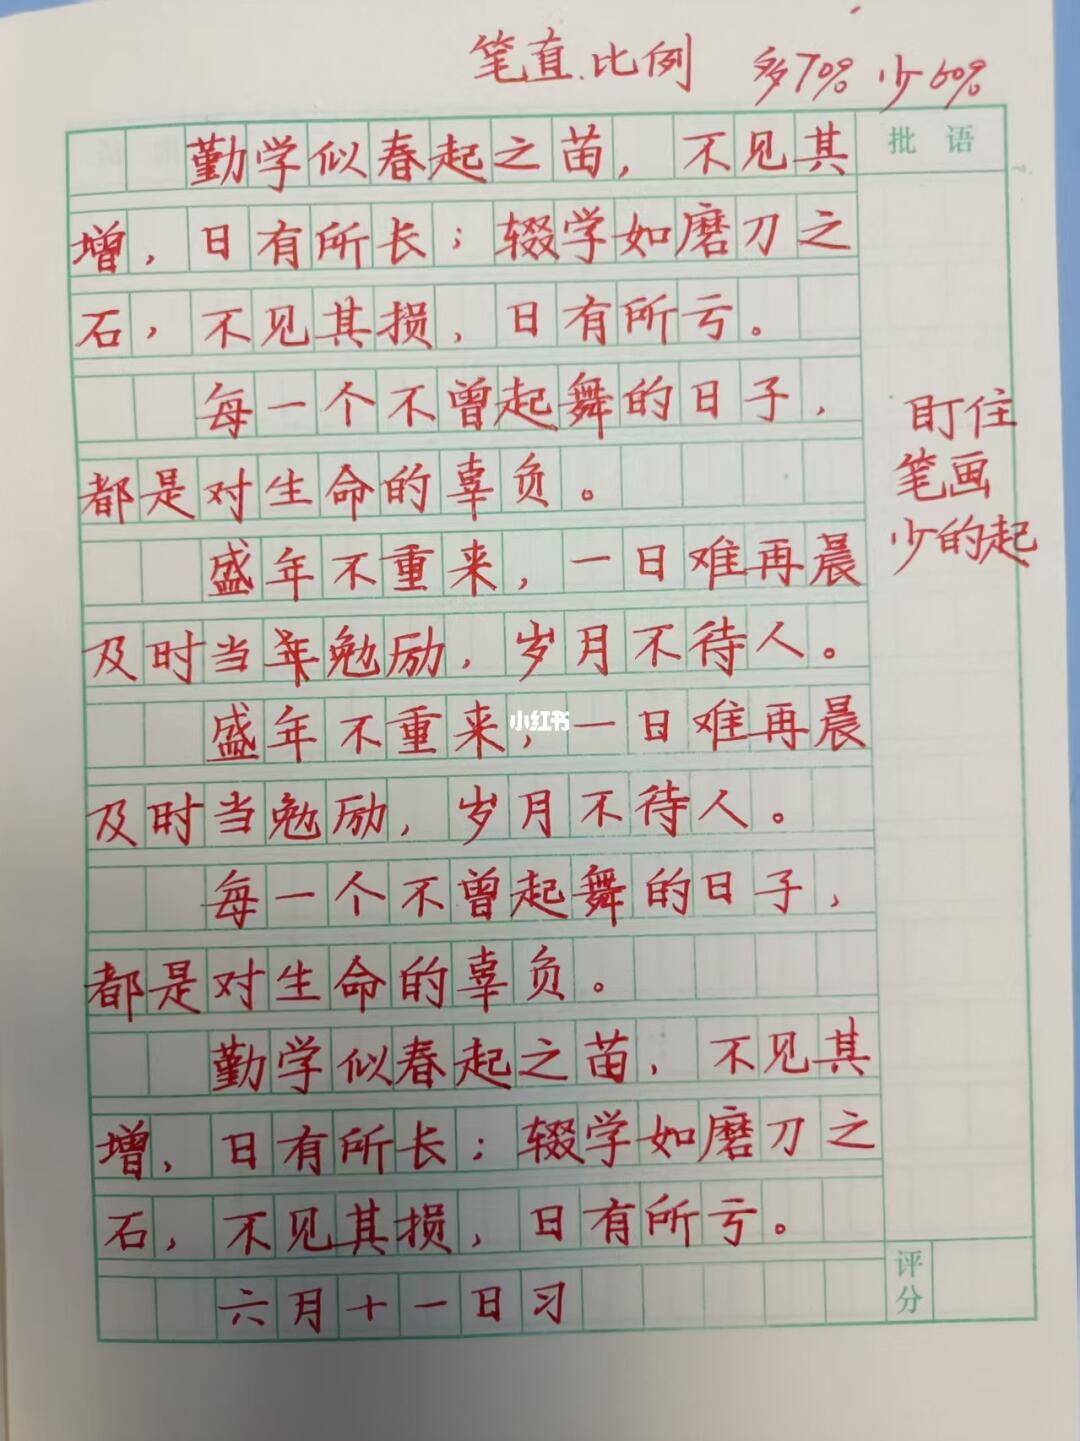 笔直.比例 多70% 少60%
批语
勤学似春起之苗，不见其
增，日有所长；辍学如磨刀之
石，不见其损，日有所亏。
每一个不曾起舞的日子，
都是对生命的辜负。
盛年不重来，一日难再晨
及时当年勉励，岁月不待人。
盛年不重来，一日难再晨
及时当勉励，岁月不待人。
每一个不曾起舞的日子，
都是对生命的辜负。
勤学似春起之苗，不见其
增，日有所长；辍学如磨刀之
石，不见其损，日有所亏。
六月十一日习
盯住
笔画
少的起
评分
小红书